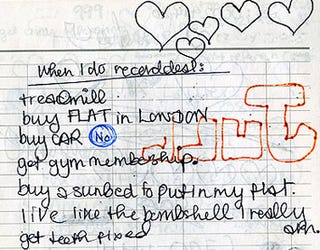 When I do record deal:
treadmill
buy FLAT in LONDON
buy CAR No
get gym membership.
buy a sunbed to put in my flat.
live like the bombshell I really
am.
get teeth fixed